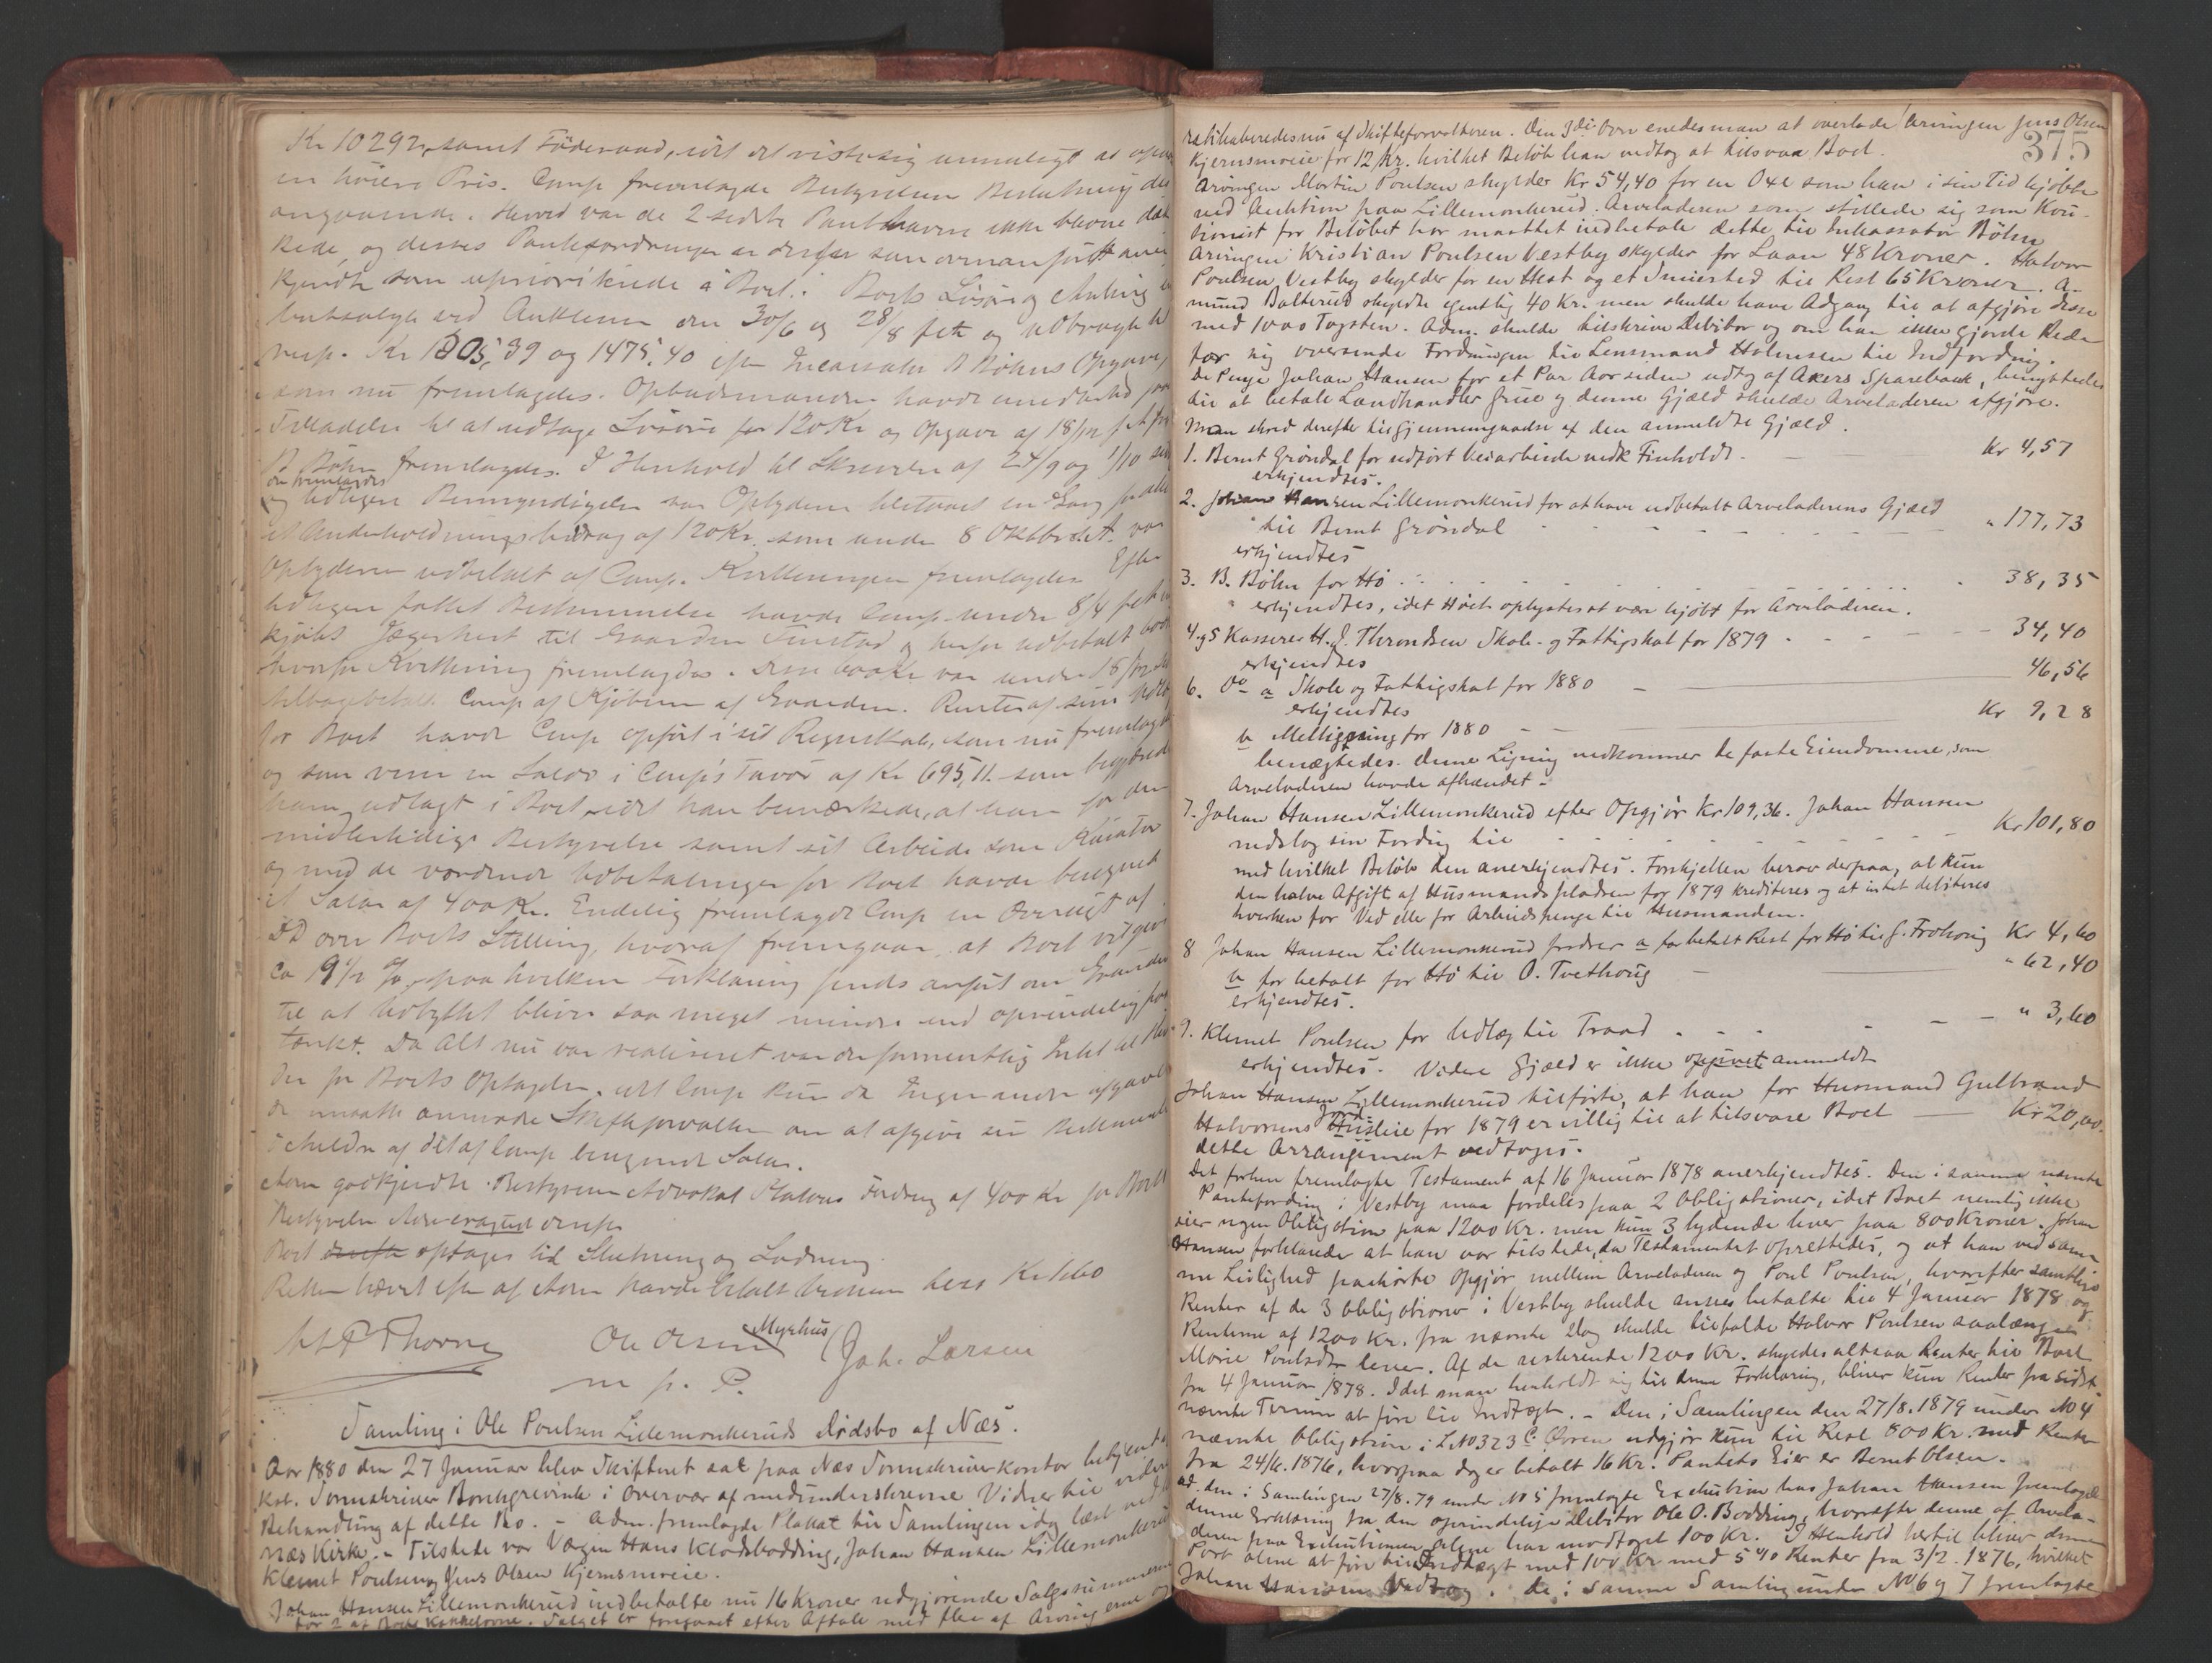 Kr 10292, samt Föderaad, idet det viste sig umuligt at opn
en høiere Pris. Comp fremlagde Bestyrelsens Beslutning des
angaaende. Herved var de 2 sidste Panthavere ikke blevne dæk
kede, og disses Pantefordringer er derfor som ovenanført aner
kjendt som uprioriterede i Boet. Boets Løsøre og
bortsolgt ved Auktioner den 30/6 og 28/8 f.A. og udbragtes til
resp. Kr 1805,39 og 1475,40 efter Incassator B Bøhns Opgave,
som nu fremlagdes. Opbudsmanden havde imidlertid
Tilladelse til at udtage Løsøre for 120 Kr og Opgave af 18/12 f.A. fra
B Bøhn fremlagdes. I Henhold til Skrivelse af 24/9 og 1/10
der fremlagdes
og tidligere Bemyndigelse var Opbyderen tilstaaet en Gang for alle
et Underholdningsbidrag af 120 Kr. som under 8 Oktbr. s.A. var
Opbyderen udbetalt af Comp. Kvitteringen fremlagdes. Efter
tidligere fattet Bestemmelse havde Comp under 8/4 f.A.
kjøbt til Gaarden og herfor udbetalt
hvorfor Kvittering fremlagdes. Disse var under 18/12
tilbagebetalt Comp af Kjøberen af Gaarden. Resten af sine Udlæg
for Boet havde Comp opført i sit Regnskab, som nu fremlagdes
og som viser en Saldo i Comp's Favør af Kr 695,11. som begjæredes
ham udlagt i Boet, idet han bemærkede, at han for den
midlertidige Bestyrelse samt sit Arbeide som Kurator
og med de vordende Udbetalinger for Boet havde beregnet
et Salær af 400 Kr. Endelig fremlagde Comp en Oversigt af
DD over Boets Stilling, hvoraf fremgaar, at Boet vil give
ca 19½ %, paa hvilken Forklaring findes anført om Grunden
til at Udbyttet bliver saa meget mindre end oprindelig
tænkt. Da Alt nu var realiseret var der formentlig Intet til Hin
der for Boets Optagelse, idet Comp kun da Ingen andre afgav
de maatte anmode Skifteforvalteren om at afgive sin Betænkning
i Anledn af det af Comp beregnede Salær.
Adm godkjendte Bestyreren Advokat Fordring af 400 Kr for Boets
Bestyrelse.
Boet derefter optages til Slutning og Lodning.
Retten hævet efter at Adm havde betalt Vidnerne hver Kr 1.60
Ole Olsen Myrhus Joh. Larsen
m. p. P.
Samling i Ole Poulsen Lillemonkeruds Dødsbo af Næs.
Aar 1880 den 27 Januar blev Skifteret sat paa Næs Sorenskriverkontor betjent af
kst. Sorenskriver Borchgrevink i Overvær af medunderskrevne Vidner til videre
Behandling af dette Bo. - Adm. fremlagde Plakat til Samlingen idag læst ved
Næs Kirke. - Tilstede var Værgen Hans Klodsbødding, Johan Hansen Lillemonkerud
Klemet Poulsen og Jens Olsen Kjernsmoeie.
Johan Hansen Lillemonkerud indbetalte nu 16 Kroner udgjørende Salgssummen
for 2 af Boets Kakkelovne. Salget er foregaaet efter Aftale med flere af Arvingerne og
375
ratihaberedes nu af Skifteforvalteren. Den 3die Ovn enedes man at overlade Arvingen Jens Olsen
Kjernsmoeie for 12 Kr. hvilket Beløb han vedtog at tilsvare Boet.
Arvingen Mortin Poulsen skylder Kr 54,40 for en Oxe som han i sin Tid kjøbte
ved Auktion paa Lillemonkerud. Arveladeren som stillede sig som Kau-
tionist for Beløbet har maattet indbetale dette til Inkassator Bøhn
Arvingen Kristian Poulsen Vestby skylder for Laan 48 Kroner. Halvor
Poulsen Vestby skylder for en Hest og et Smiested til Rest 65 Kroner. A-
mund Balterud skyldte egentlig 40 Kr. men skulde have Adgang til at afgjøre disse
med 1000 Tagsten. Adm. skulde tilskrive Debitor og om han ikke gjorde Rede
for sig oversende Fordringen til Lensmand Holmsen til Indfordring.
De Penge Johan Hansen for et Par Aar siden udtog af Akers Sparebank, benyttedes
til at betale Landhandler Grue og denne Gjæld skulde Arveladeren afgjøre.
Man skred derefter til Gjennemgaaelse af den anmeldte Gjæld.
1. Bernt Grøndal for udført Veiarbeide vedk Finholdt. - Kr 4,57
erkjendtes.
2. Johan Hansen Lillemonkerud for at have udbetalt Arveladerens Gjæld
til Bernt Grøndal - - - - - " 177,73
erkjendtes
3. B. Bøhn for Hø . . . . . . . . 38,35
erkjendtes, idet Høet oplystes at være kjøbt for Arveladeren.
4 og 5 Kasserer H. J. Throndsen Skole- og Fattigskat for 1879 - - - - 34,40
erkjendtes
6. Do a Skole og Fattigskat for 1880 - 46,56
erkjendtes
b Melligning for 1880 - - Kr 9,28
benægtedes. Denne Ligning vedkommer de faste Eiendomme, som
Arveladeren havde afhændet -
7. Johan Hansen Lillemonkerud efter Opgjør Kr 109,36. Johan Hansen
nedslog sin Fordring til - - - - Kr 101,80
med hvilket Beløb den anerkjendtes. Forskjellen berov derpaa, at kun
den halve Afgift af Husmandspladsen for 1879 krediteres og at intet debiteres
hverken for Ved eller for Arbeidspenge til Husmanden.
8 Johan Hansen Lillemonkerud fordrer a for betalt Rest for Hø til G. Frohoug Kr 4,60
b for betalt for Hø til O. Tvethoug - " 62,40
erkjendtes.
9. Klemet Poulsen for Udlæg til Traad . - - - - " 3,60
erkjendtes. Videre Gjæld er ikke opgivet anmeldt
Johan Hansen Lillemonkerud tilførte, at han for Husmand Gulbrand
Halvorsens Husleie Jord for 1879 er villig til at tilsvare Boet — Kr 20,00.
dette Arrangement vedtoges.
Det forhen fremlagte Testament af 16 Januar 1878 anerkjendtes. Den i samme nævnte
Pantefordring i Vestby maa fordeles paa 2 Obligationer, idet Boet nemlig ikke
eier nogen Obligation paa 1200 Kr. men kun 3 lydende hver paa 800 Kroner. Johan
Hansen forklarede at han var tilstede, da Testamentet oprettedes, og at han ved sam-
me Leilighed paahørte Opgjør mellem Arveladeren og Poul Poulsen, hvorefter samtlige
Renter af de 3 Obligationer i Vestby skulde ansees betalte til 4 Januar 1878 og
Renterne af 1200 Kr. fra nævnte Dag skulde tilfalde Halvor Poulsen saalænge
Marie Poulsdtr lever. Af de resterende 1200 Kr. skyldes altsaa Renter til Boet
fra 4 Januar 1878. Idet man henholdt sig til denne Forklaring, bliver kun Renter fra sidst-
nævnte Termin at føre til Indtægt. - Den i Samlingen den 27/8.1879 under No 4
nævnte Obligation i L.No 323 c Øvren udgjør kun til Rest 800 Kr. med Renter
fra 24/6.1876, hvorpaa dog er betalt 16 Kr. Pantets Eier er Bernt Olsen.
Ad. den i Samlingen 27/8.79 under No 5 fremlagte Exekution har Johan Hansen fremlagde
denne Erklæring fra den oprindelige Debitor Ole O. Bødding, hvorefter denne af Arvela-
deren paa Exekutionen alene har modtaget 100 Kr. I Henhold hertil bliver denne
Post alene at føre til Indtægt med 100 Kr med 5 % Renter fra 3/2.1876, hvilket
Johan Hansen Vedtog. De i samme Samling under No 6 og 7 fremlagte